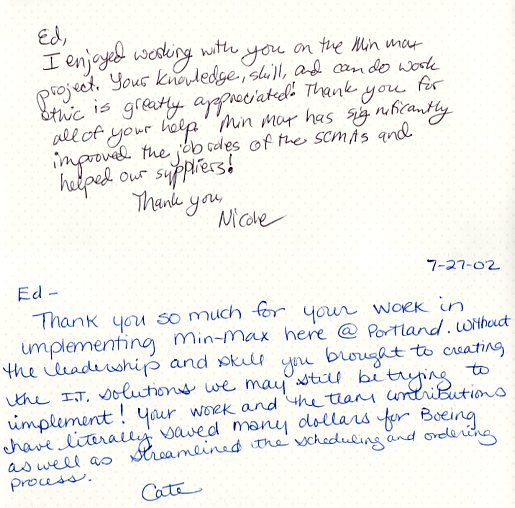 Ed,
I enjoyed working with you on the Min max
project. Your knowledge, skill, and can do work
ethic is greatly appreciated! Thank you for
all of your help. Min Max has significantly
improved the job roles of the SCMAs and
helped our suppliers!
Thank you,
Nicole
7-27-02
Ed -
Thank you so much for your work in
implementing Min-Max here @ Portland. Without
the leadership and skill you brought to creating
the I.T. solutions we may still be trying to
implement! Your work and the team contributions
have literally saved many dollars for Boeing
as well as streamlined the scheduling and ordering
process.
Cate